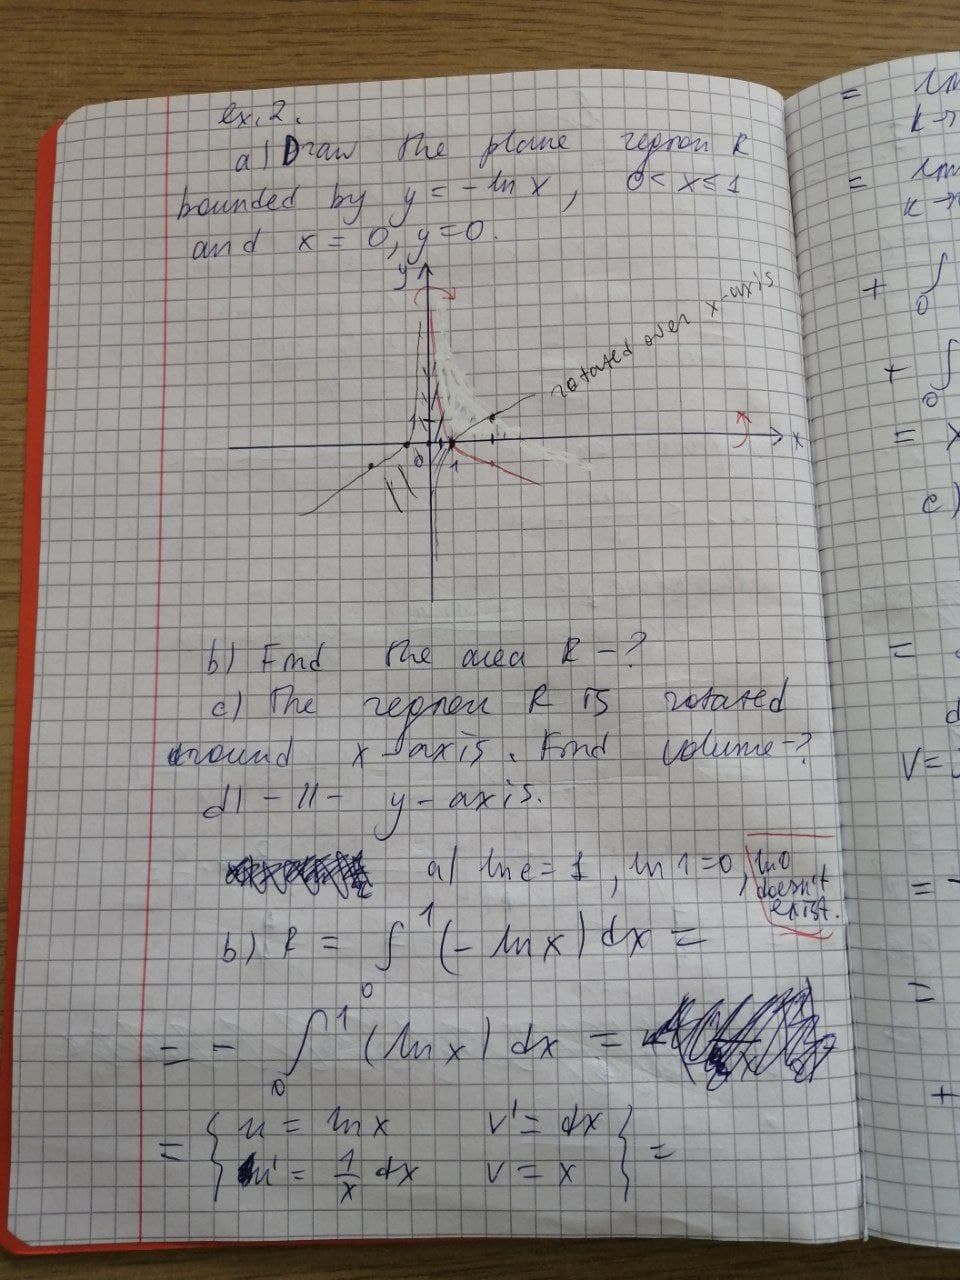 ex. 2.
a) Draw the plane region R
bounded by y = - ln x, 0 < x ≤ 1
and x = 0, y = 0.
y
rotated over x-axis
x
0 1
b) Find the area R - ?
c) The region R is rotated
around x-axis. Find volume - ?
d) - 11 - y-axis.
a) ln e = 1, ln 1 = 0, ln 0
doesn't
exist.
b) R = ∫₀¹ (- ln x) dx =
= - ∫₀¹ (ln x) dx =
= { u = ln x v' = dx
u' = 1/x dx v = x } =
= lim
k →
= lim
k →
+ ∫₀
+ ∫₀
= x
c)
=
V =
= -
=
+